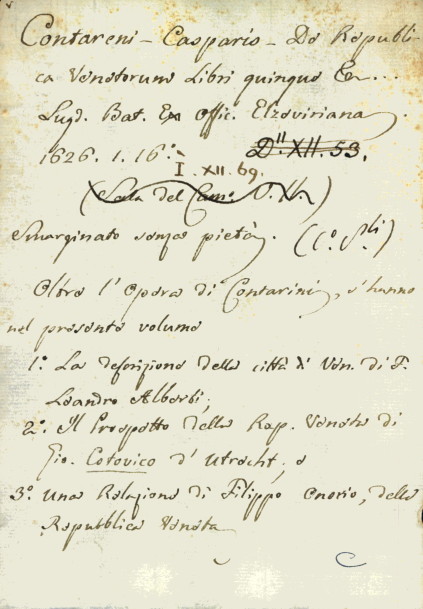 Contareni - Casparis - De Republi-
ca Venetorum Libri quinque &c...
Lugd. Bat. Ex Offic. Elzeviriana.
1626. 1. 16°.- D". XII. 53.
I. XII. 69.
(Sala del Cam°.
Smarginato senza pietà.
Oltre l'Opera di Contarini, s'hanno
nel presente volume
1°. La descrizione della città di Ven. di F.
Leandro Alberti;
2°. Il Prospetto della Rep. Veneta di
Gio. Cotovico d'Utrecht; e
3°. una Relazione di Filippo Onorio, della
Repubblica Veneta